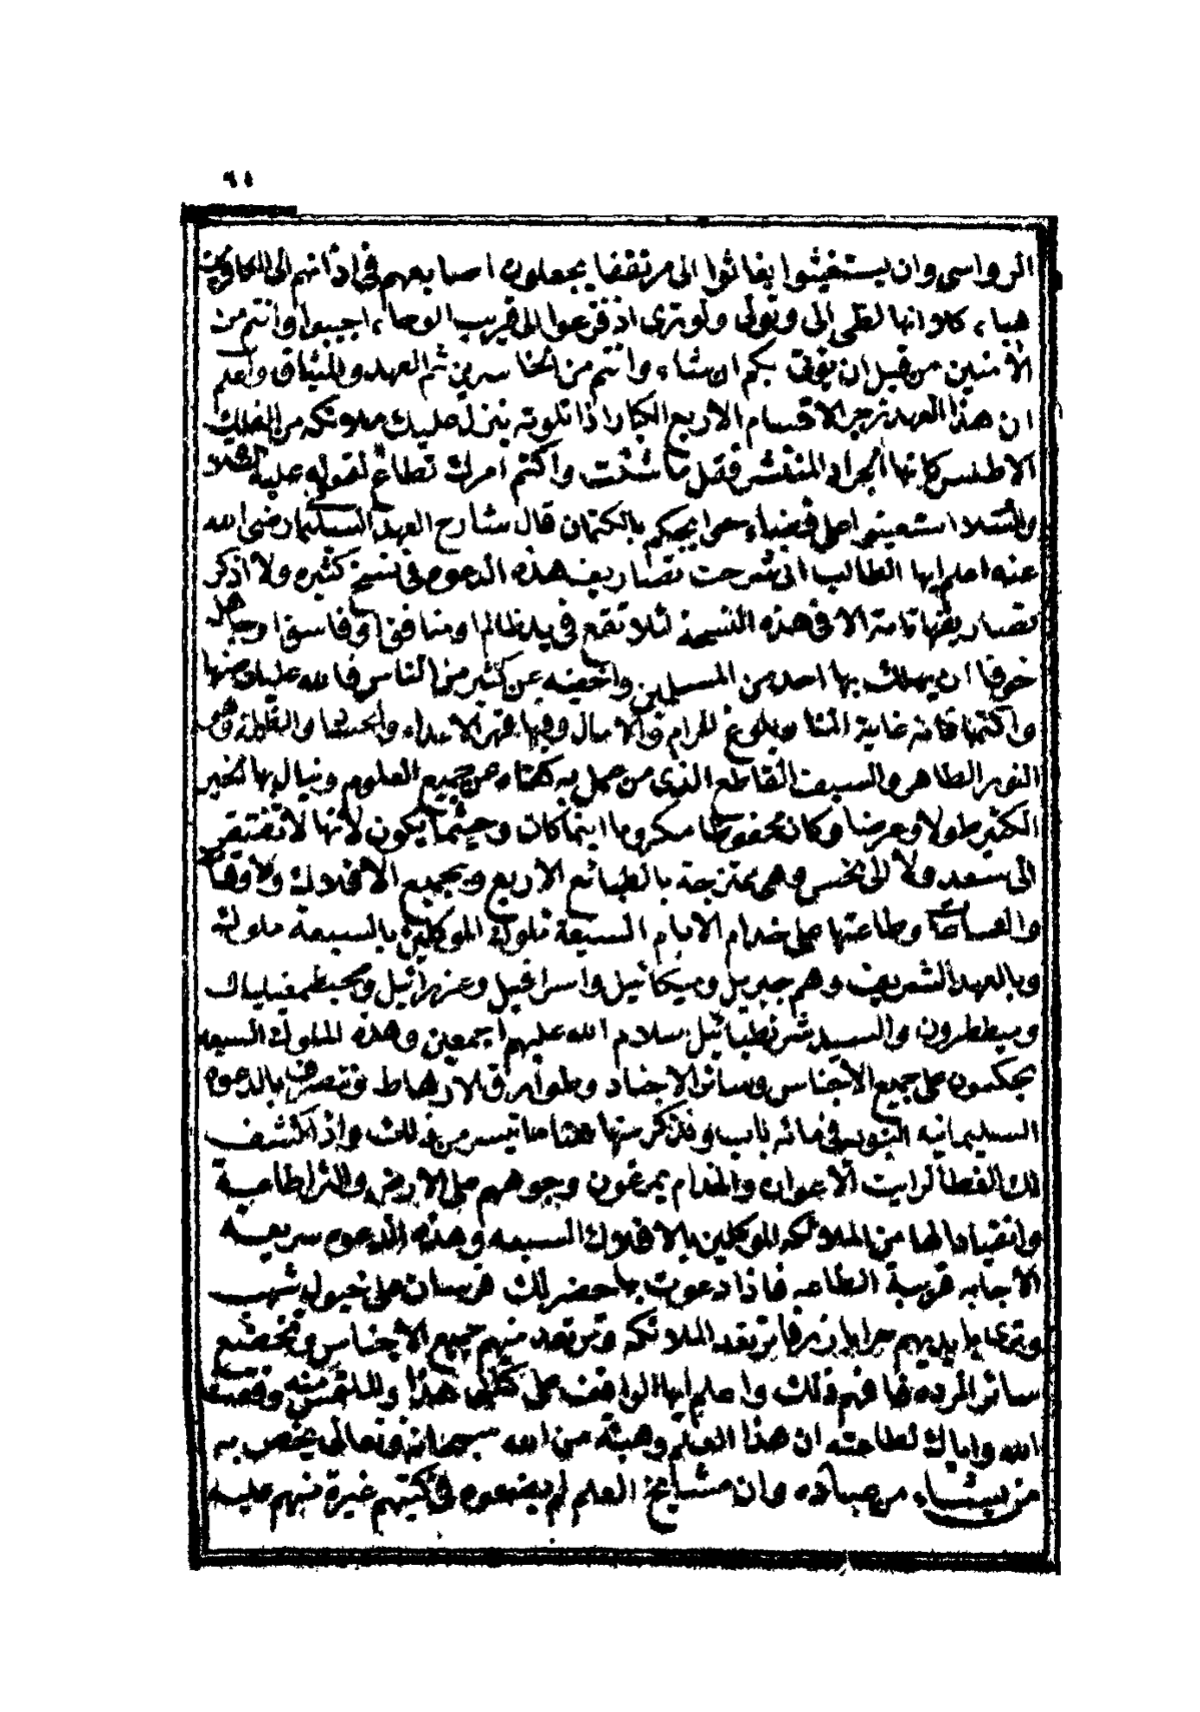 ٩١
الرواسي وان يستغيثوا يغاثوا الى مرتفقا يجعلون اصابعهم في اذانهم الى الكافرين
هيا، كلا انها لظى الى وتولى ولو ترى اذ فزعوا الى قريب الوحا، اجيبوا وانتم من
الأمنين من قبل ان يؤتى بكم ان شاء وانتم من الخاسرين ثم العهد والميثاق واعلم
ان هذا العهد زجر الاقسام الاربع الكبار اذا تلوته ينزل عليك ملائكه من الفلك
الاطلس كانها الجراد المنتشر فقل ما شئت واكتم امرك تطاع لقوله عليه الصلاة
والسلام استعينوا على قضاء حوايجكم بالكتمان قال شارح العهد السليمانى رضى الله
عنه اعلم ايها الطالب انى شرحت تصاريف هذه الدعوه في نسخ كثيره ولا اذكر
تصاريفها تامة الا فى هذه النسخة لئلا تقع في يد ظالم او منافق او فاسق او جاهل
خوفا ان يهلك بها احد من المسلمين واخفيه عن كثير من الناس فالله عليك صنها
واكتمها فانه غاية المنا وبلوغ المرام والامال وفيها قهر الاعداء و والظلمة وهى
النور الطاهر والسيف القاطع الذى من عمل به كفتاه عن جميع العلوم وينال بها الخير
الكثير طولا وعرضا وكان محفوظا مكروما اينما كان وحيثما يكون لأنها لا تفتقر
الى سعد ولا الى نحس وهى ممتزجة بالطبائع الاربع وبجميع الافلاك والاوقات
والساعات وطاعتها على خدام الايام السبعة ملوك الموكلين بالسبعة ملوك
وبالعهد الشريف وهم جبريل وميكائيل واسرافيل وعزرائيل
وميططرون والسيد سلام الله عليهم اجمعين وهذه الملوك السبعه
يحكمون على جميع الأجناس وسائر الاجناد وطوائف الارهاط وتتصرف بالدعوه
السليمانيه فى مائه باب ونذكر منها هنا ما تيسر من ذلك واذا كشف
لك الغطا لرايت الأعوان والخدام يمرغون وجوههم على الارض والثرا طاعة
وانقيادا لها من الملائكه الموكلين بالافلاك السبعه وهذه الدعوه سريعه
الأجابه قريبة الطاعه فاذا دعوت بها حضر لك فرسان على خيول شهب
وترى بايديهم حرابا زرقا ترتعد الملائكه وترتعد منهم جميع الأجناس وتخضع
سائر المرده فافهم ذلك واعلم ايها الواقف على كتابى هذا والملتمس منه وفقنا
الله واياك لطاعته ان هذا العلم وهبة من الله سبحانه وتعالى يخص به
من يشاء من عباده وان مشايخ العلم لم يضعوه فى كتبهم غيرة منهم عليه